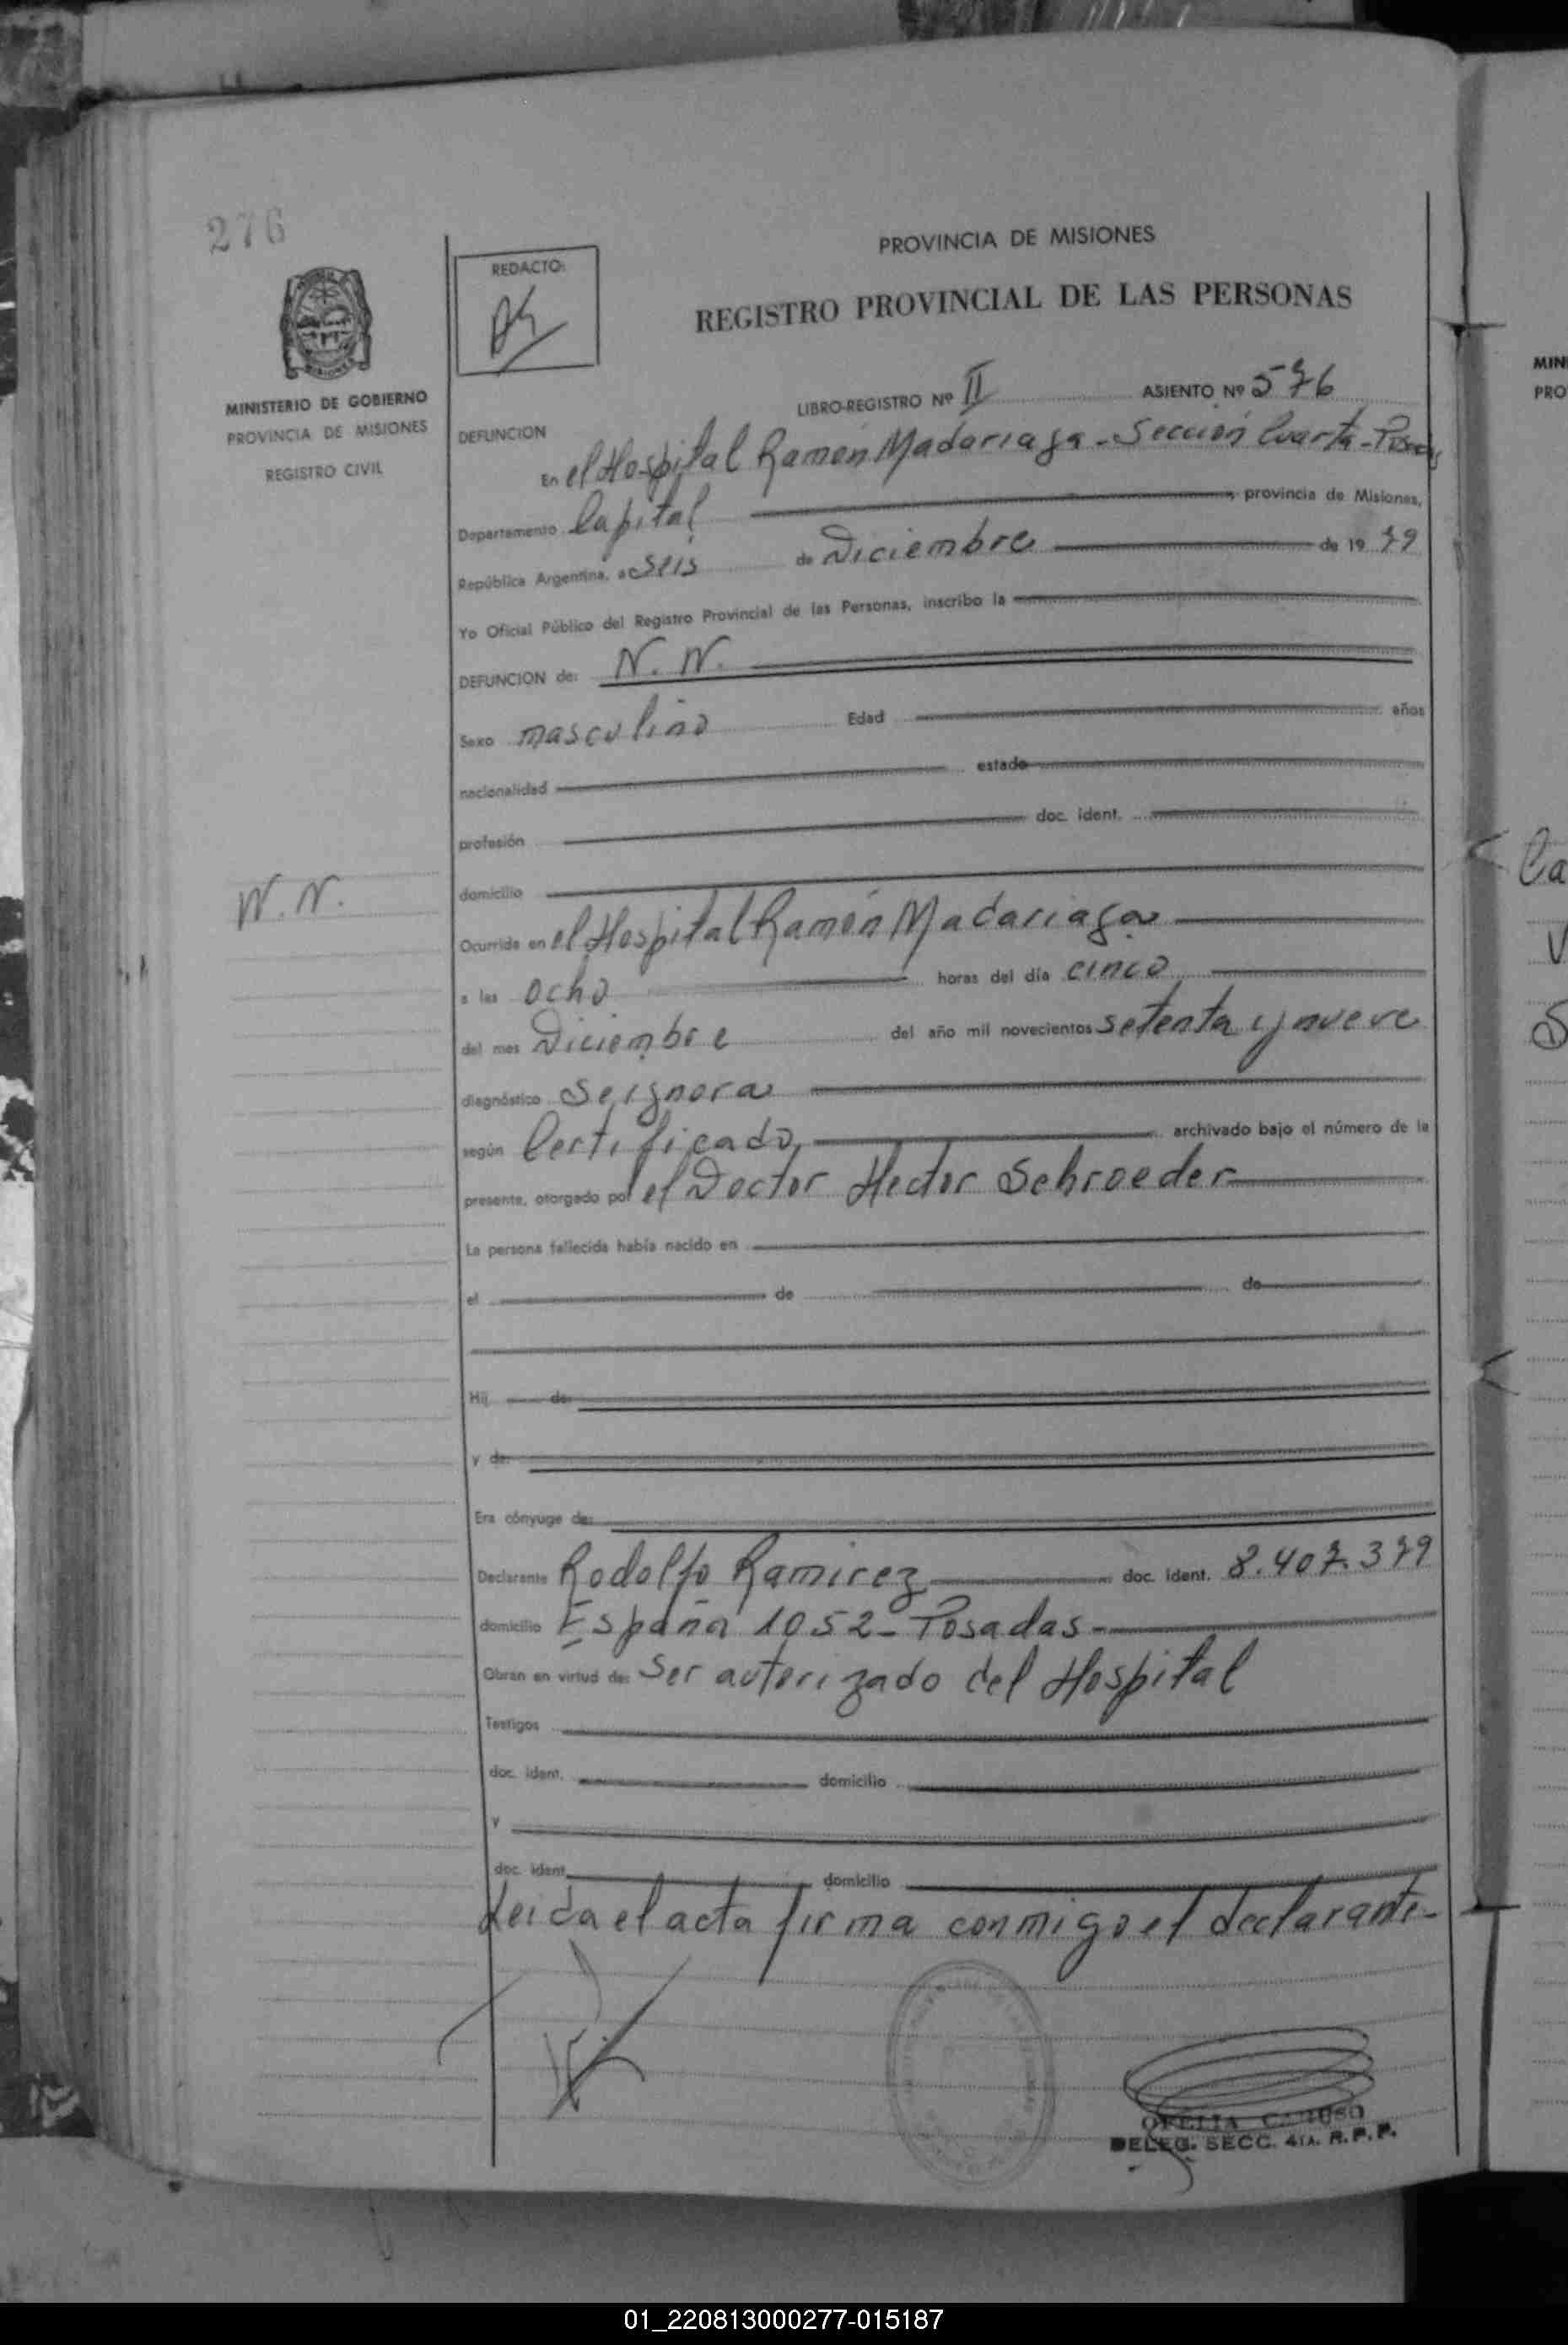 276
MINISTERIO DE GOBIERNO
PROVINCIA DE MISIONES
REGISTRO CIVIL
REDACTO:
PROVINCIA DE MISIONES
REGISTRO PROVINCIAL DE LAS PERSONAS
LIBRO-REGISTRO Nº II ASIENTO Nº 576
DEFUNCION
En el Hospital Ramón Madariaga - Sección Cuarta - Posadas
Departamento Capital provincia de Misiones,
República Argentina, a seis de Diciembre de 19 79
Yo Oficial Público del Registro Provincial de las Personas, inscribo la
DEFUNCION de: N. N.
Sexo masculino Edad años
nacionalidad estado
profesión doc. ident.
domicilio
N. N.
Ocurrida en el Hospital Ramón Madariaga
a las ocho horas del día cinco
del mes Diciembre del año mil novecientos setenta y nueve
diagnóstico Se ignora
según Certificado archivado bajo el número de la
presente, otorgado por el Doctor Hector Schroeder
La persona fallecida había nacido en
el de de
Hij de:
y de:
Era cónyuge de:
Declarante Rodolfo Ramirez doc. ident. 8.407.379
domicilio España 1052 - Posadas -
Obran en virtud de: Ser autorizado del Hospital
Testigos
doc. ident. domicilio
y
doc. ident. domicilio
Leida el acta firma conmigo el declarante-
OFELIA CARUSO
DELEG. SECC. 4ta. R.P.P.
MIN
PRO
Ca
01_220813000277-015187